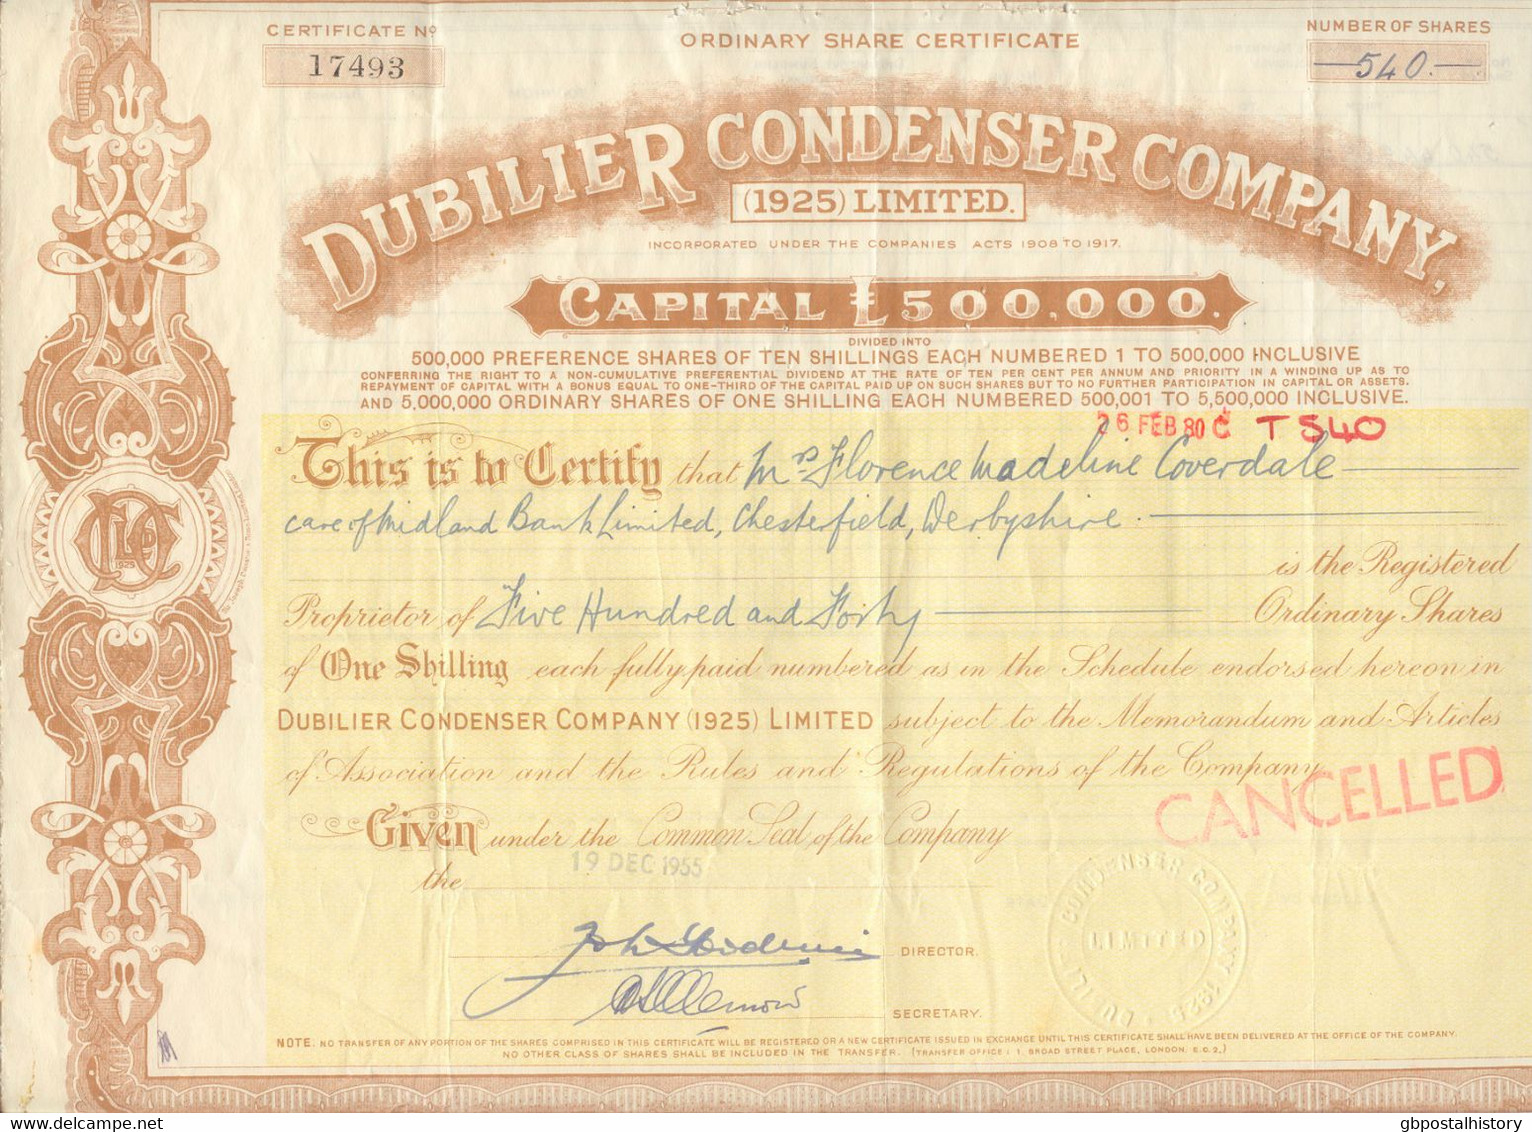 CERTIFICATE Nº
17493
ORDINARY SHARE CERTIFICATE
NUMBER OF SHARES
540.
DUBILIER CONDENSER COMPANY,
(1925) LIMITED.
INCORPORATED UNDER THE COMPANIES ACTS 1908 TO 1917.
CAPITAL £500,000.
DIVIDED INTO
500,000 PREFERENCE SHARES OF TEN SHILLINGS EACH NUMBERED 1 TO 500,000 INCLUSIVE
CONFERRING THE RIGHT TO A NON-CUMULATIVE PREFERENTIAL DIVIDEND AT THE RATE OF TEN PER CENT PER ANNUM AND PRIORITY IN A WINDING UP AS TO
REPAYMENT OF CAPITAL WITH A BONUS EQUAL TO ONE-THIRD OF THE CAPITAL PAID UP ON SUCH SHARES BUT TO NO FURTHER PARTICIPATION IN CAPITAL OR ASSETS.
AND 5,000,000 ORDINARY SHARES OF ONE SHILLING EACH NUMBERED 500,001 TO 5,500,000 INCLUSIVE.
26 FEB 80 C T 540
This is to Certify that Mrs Florence Madeline Coverdale
care of Midland Bank Limited, Chesterfield, Derbyshire.
is the Registered
Proprietor of Five Hundred and Forty Ordinary Shares
of One Shilling each fully paid numbered as in the Schedule endorsed hereon in
DUBILIER CONDENSER COMPANY (1925) LIMITED subject to the Memorandum and Articles
of Association and the Rules and Regulations of the Company
CANCELLED
Given under the Common Seal of the Company
the 19 DEC 1955
DIRECTOR.
SECRETARY.
CONDENSER COMPANY 1925
LIMITED
DCLD
1925
NOTE: NO TRANSFER OF ANY PORTION OF THE SHARES COMPRISED IN THIS CERTIFICATE WILL BE REGISTERED OR A NEW CERTIFICATE ISSUED IN EXCHANGE UNTIL THIS CERTIFICATE SHALL HAVE BEEN DELIVERED AT THE OFFICE OF THE COMPANY.
NO OTHER CLASS OF SHARES SHALL BE INCLUDED IN THE TRANSFER. (TRANSFER OFFICE: 1, BROAD STREET PLACE, LONDON, E.C.2.)
www.delcampe.net
gbpostalhistory